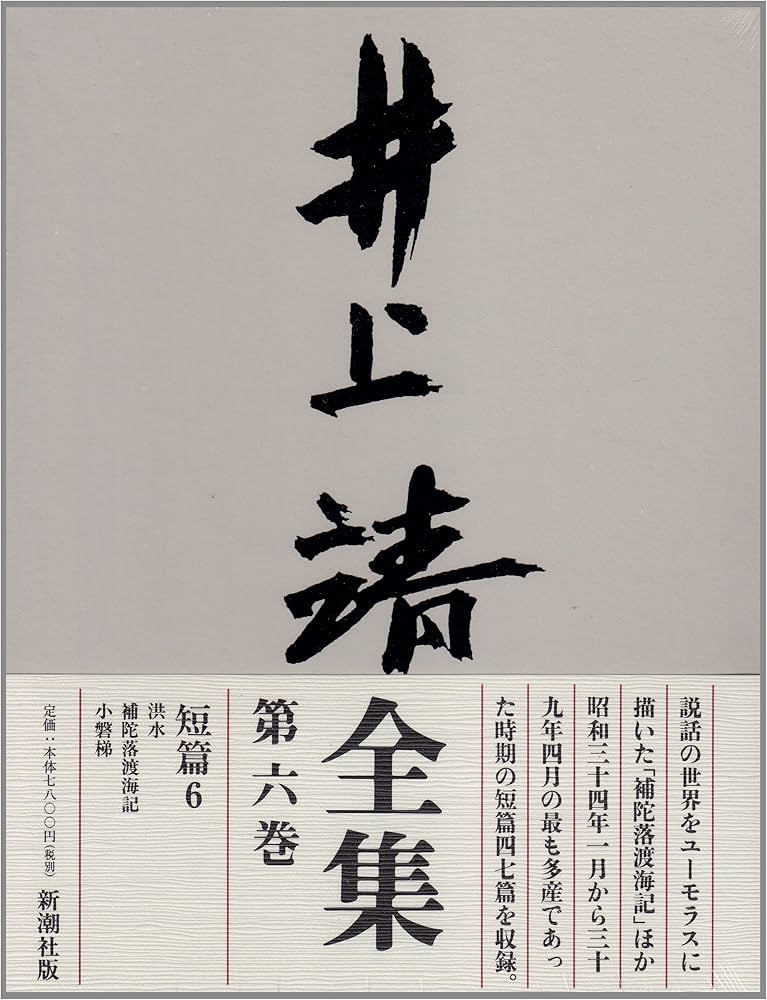 井上靖
全集
説話の世界をユーモラスに
描いた「補陀落渡海記」ほか
昭和三十四年一月から三十
九年四月の最も多産であっ
た時期の短篇四七篇を収録。
第六巻
短篇6
洪水
補陀落渡海記
小磐梯
定価：本体七八〇〇円（税別）
新潮社版